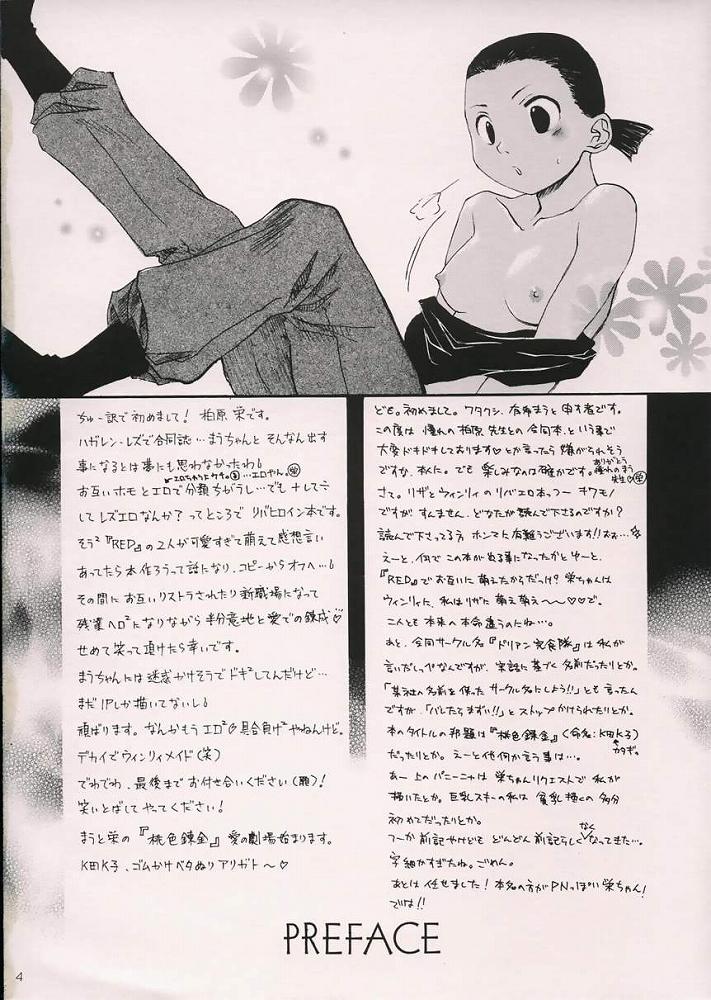 ちゅー訳で初めまして！柏原 栄です。
ハガレン・レズで合同誌…まうちゃんと そんなん出す
事になるとは夢にも思わなかったわ♭
…エロやん。
お互いホモとエロで分類ちがうし…でも＋して÷
して レズエロなんか？ってところで リバヒロイン本です。
そう²『RED』の2人が可愛すぎて萌えて感想言い
あってたら本作ろうって話になり、コピーからオフへ…♭
その間にお互いリストラされたり新職場になって
残業ヘロ²になりながら半分意地と愛での錬成♡
せめて笑って頂けたら幸いです。
まうちゃんには迷惑かけそうでドキ²してんだけど…
まだ1Pしか描いてないし♭
頑張ります。なんかもう エロ²具合負け²やねんけど。
デカイでウィンリィメイド（笑）
でわでわ、最後までお付き合いください（願）！
笑いとばして やってください！
まうと栄の『桃色錬金』愛の劇場始まります。
K田K子、ゴムかけベタぬり アリガト〜♡
ども。初めまして。ワタクシ、有希まうと申す者です。
この度は 憧れの柏原先生との合同本、という事で
大変ドキドキしております♡とか言ったら嫌がられそう
ですな、本人に。でも 楽しみなのは確かです。
ありがとう
憧れのまう
先生(栄)
さて。リザとウィンリィのリバエロ本、っつー キワモノ
ですが、すんません、どなたが読んで下さるのですか？
読んで下さってる方 ホンマに有難うございます!!おぉ…
えーと、何で この本が出る事になったかとゆーと、
『RED』でお互いに萌えたからだっけ？栄ちゃんは
ウィンリィに、私はリザに萌え萌え〜〜♡♡で。
二人とも 本来の本命違うのにね…。
あと、合同サークル名『ドリアン完食隊』は 私が
言いだしっぺなんですが、実話に基づく名前だったりとか。
「某社の名前を使った サークル名にしよう!!」とも言ったん
ですが、「バレたらまずい!!」とストップかけられたりとか。
本のタイトルの邦題は『桃色錬金』（命名：K田K子）
カタギ。
だったりとか。えーと他何か言う事は…。
あー上のパニーニャは 栄ちゃんリクエストで 私が
描いたとか。巨乳スキーの私は 貧乳描くの多分
初めてだったりとか。
つーか前記やけども どんどん前記らしくなくなってきた…。
字細かすぎたね。ごめん。
あとは任せました！本名の方がPNっぽい栄ちゃん！
では!!
PREFACE
4